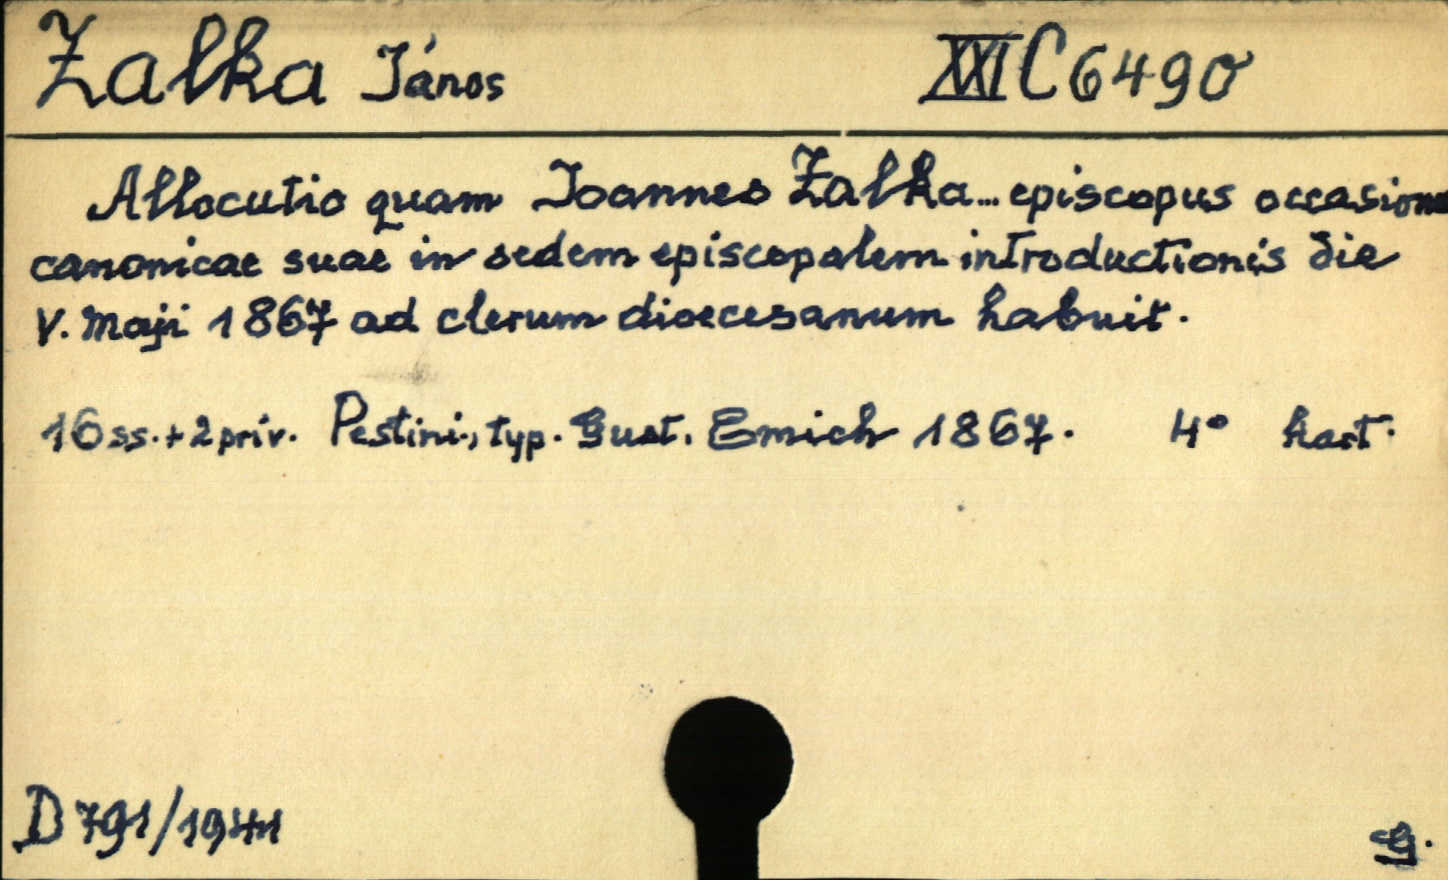 Zalka János XXI C 6490
Allocutio quam Joannes Zalka... episcopus occasione
canonicae suae in sedem episcopalem introductionis die
V. Maji 1867 ad clerum dioecesanum habuit.
16 ss. + 2 priv. Pestini, typ. Gust. Emich 1867. 4° kart.
D 791/1941
G.